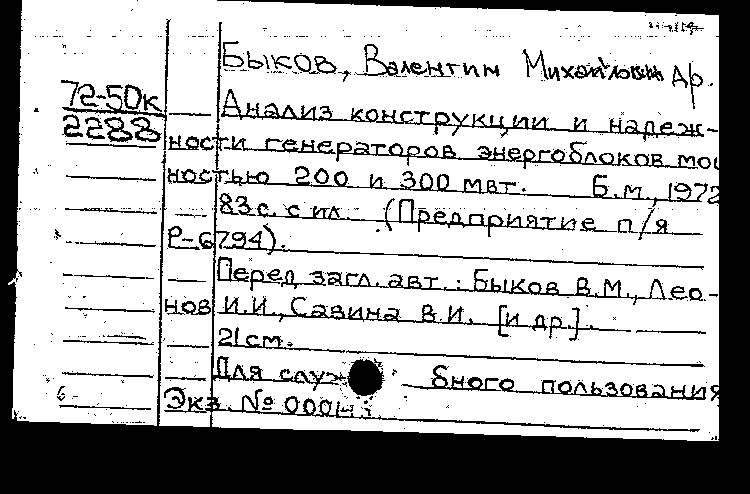 Быков, Валентин Михайлович и др.
72-50к
2288
Анализ конструкции и надеж-
ности генераторов энергоблоков мощ
ностью 200 и 300 мвт. Б.м., 1972
83 с. с ил. (Предприятие п/я
Р-6794).
Перед загл. авт.: Быков В.М., Лео-
нов И.И., Савина В.И. [и др.].
21 см.
Для служебного пользования
Экз. №
6